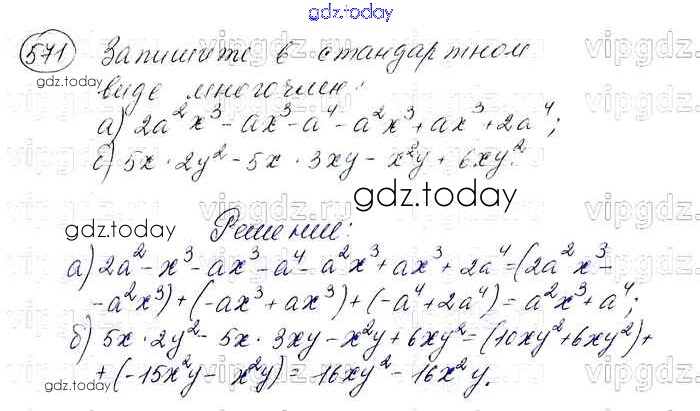 gdz.today
571 Запишите в стандартном
gdz.today
виде многочлен:
а) 2a²x³ - ax³ - a⁴ - a²x³ + ax³ + 2a⁴;
б) 5x · 2y² - 5x · 3xy - x²y + 6xy².
gdz.today
gdz.today Решение:
а) 2a² - x³ - ax³ - a⁴ - a²x³ + ax³ + 2a⁴ = (2a²x³ -
- a²x³) + (-ax³ + ax³) + (-a⁴ + 2a⁴) = a²x³ + a⁴;
б) 5x · 2y² - 5x · 3xy - x²y + 6xy² = (10xy² + 6xy²) +
+ (-15x²y - x²y) = 16xy² - 16x²y.
gdz.today